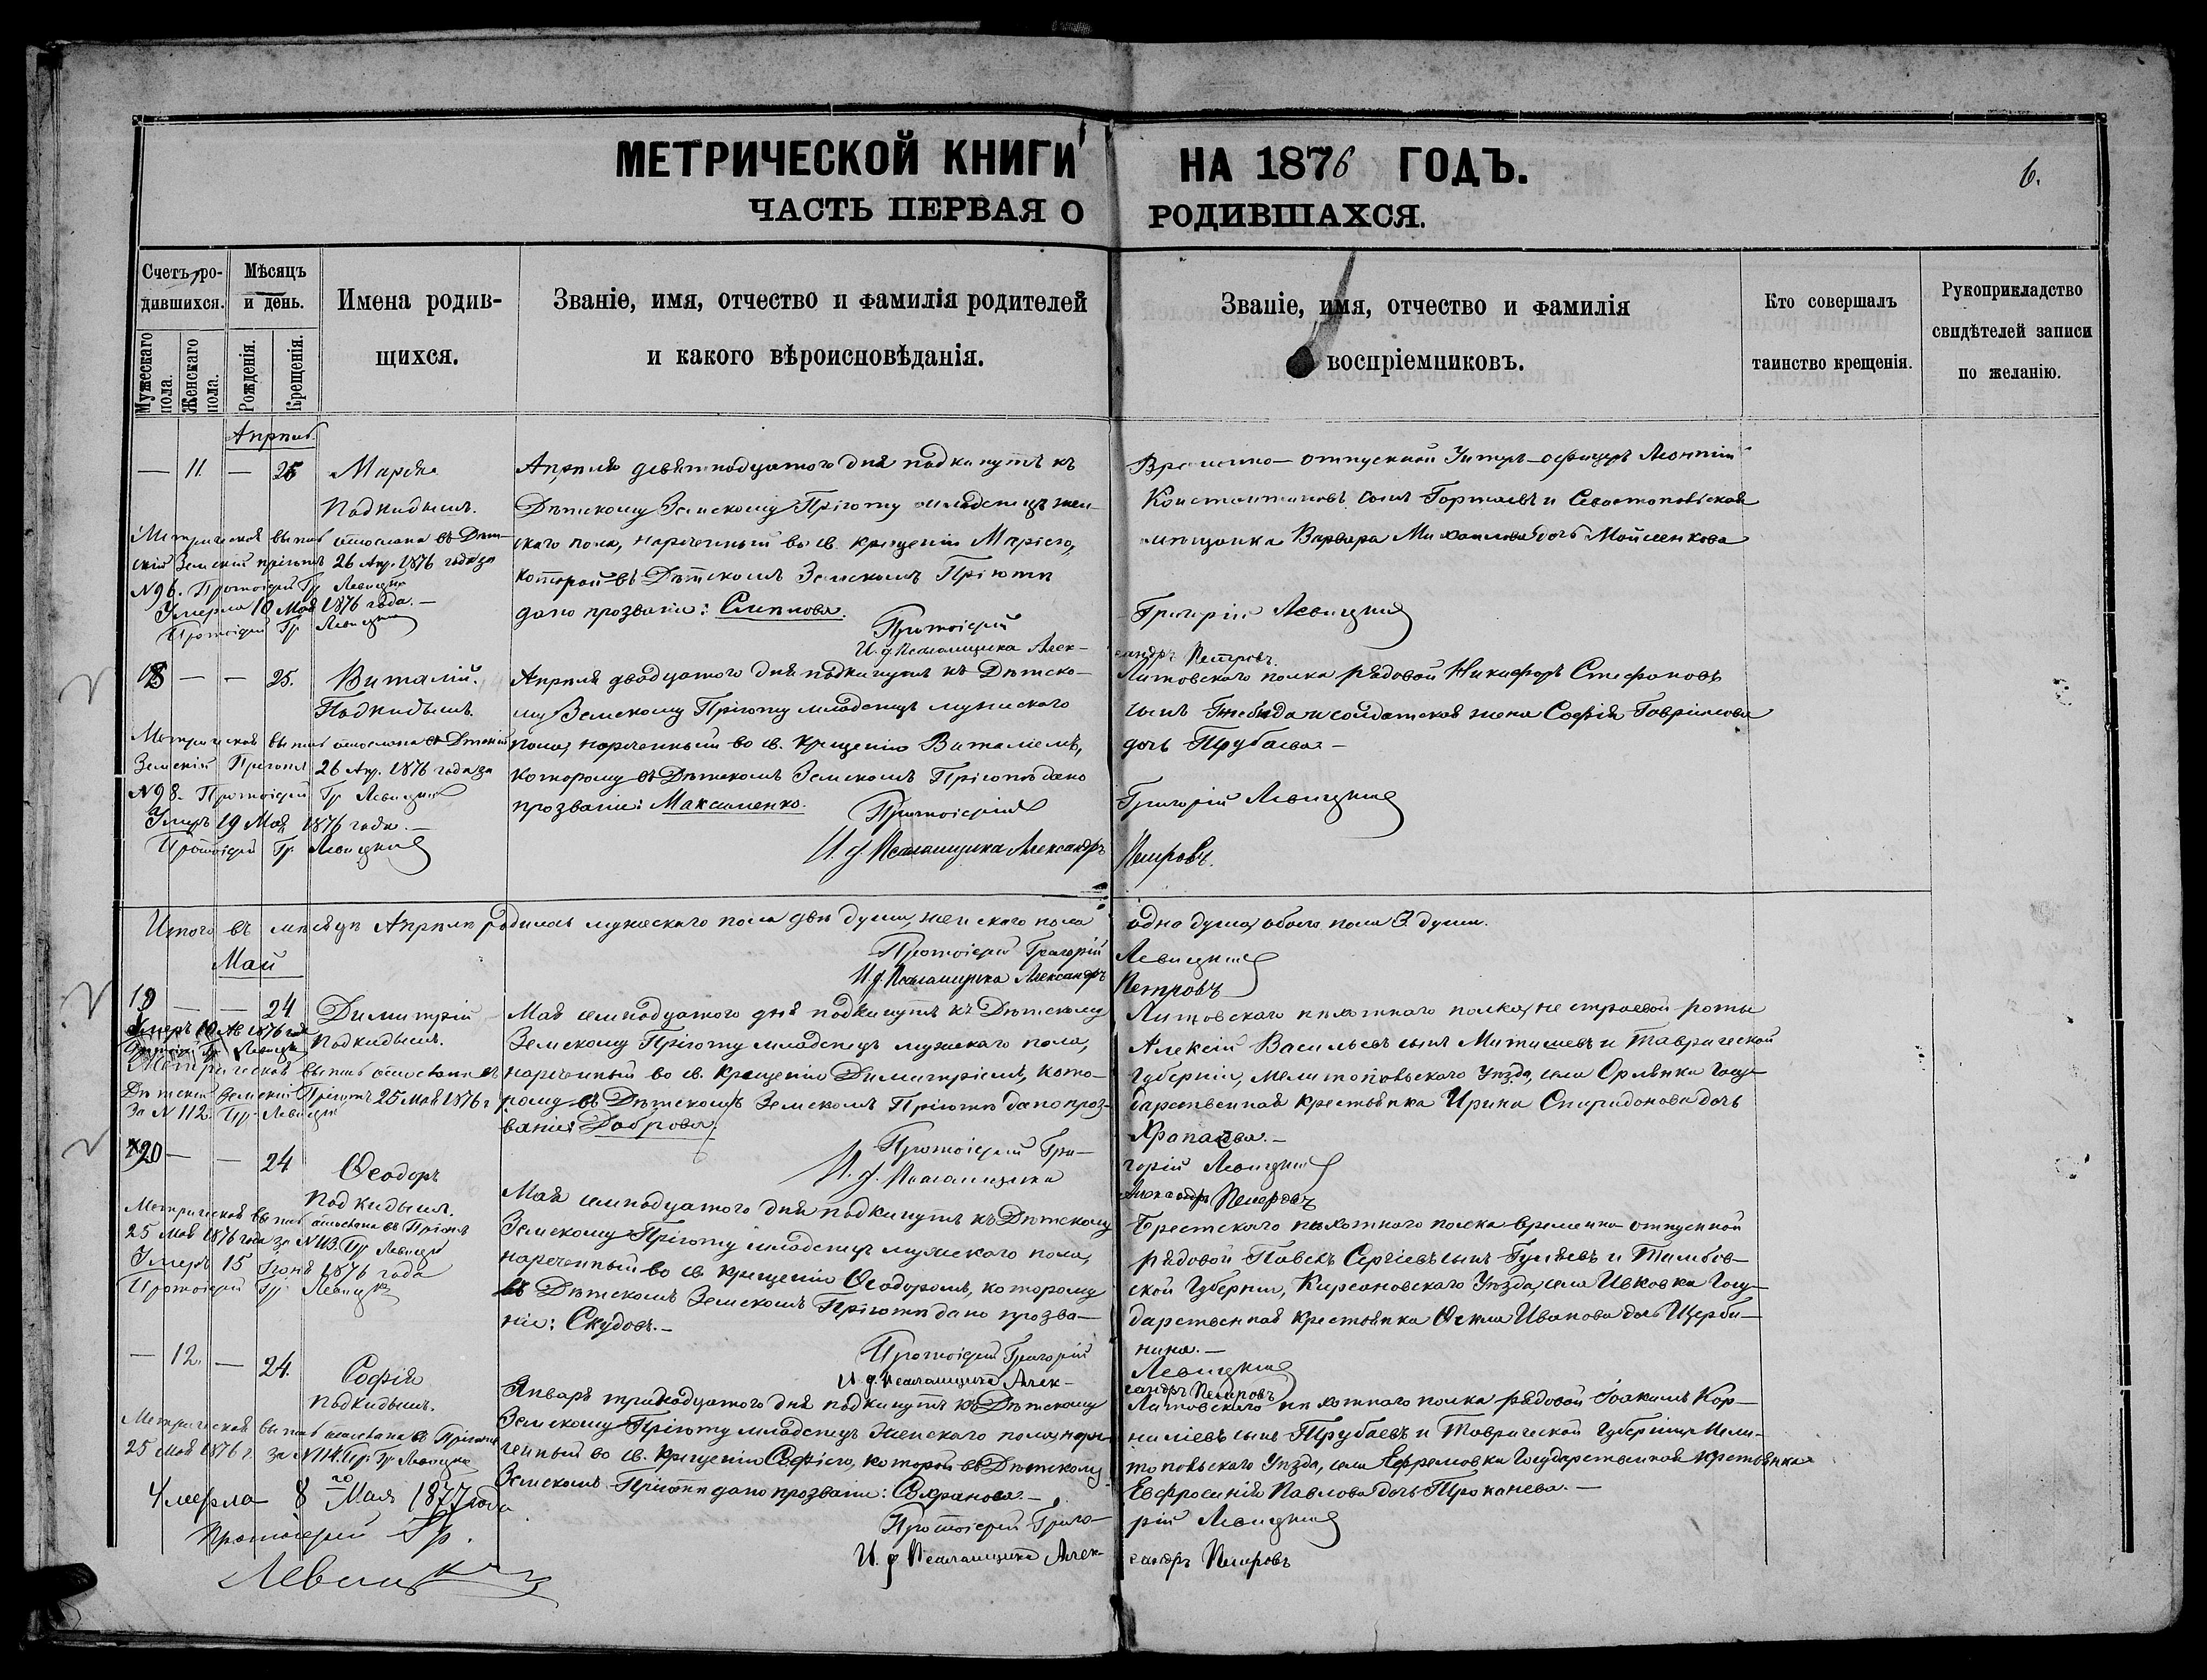 МЕТРИЧЕСКОЙ КНИГИ НА 1876 ГОДЪ.
6.
ЧАСТЬ ПЕРВАЯ О РОДИВШАХСЯ.
Счетъ родившихся.
Мужескаго пола.
Женскаго пола.
Мѣсяцъ и день.
Рожденія.
Крещенія.
Имена родившихся.
Званіе, имя, отчество и фамилія родителей
и какого вѣроисповѣданія.
Званіе, имя, отчество и фамилія
воспріемниковъ.
Кто совершалъ
таинство крещенія.
Рукоприкладство
свидѣтелей записи
по желанію.
Апрѣль.
— 11. — 25 Марія
Подкидышъ.
Метрическая выпись отослана въ Дѣтскій Земскій пріютъ 26 Апр. 1876 года за
№96. Протоіерей Гр. Левицкій
Умерла 10 Мая 1876 года.—
Протоіерей Гр. Левицкій
Апрѣля девятнадцатого дня подкинутъ къ
Дѣтскому Земскому Пріюту младенецъ женскаго пола, нареченный во св. крещеніи Маріею,
которой въ Дѣтскомъ Земскомъ Пріютѣ
дано прозваніе: Слѣпнова.
Временно-отпускной Унтеръ-офицеръ Леонтій
Константиновъ сынъ и Севастопольская
мѣщанка Варвара Михаилова дочь Мойсенкова
Протоіерей Григорій Левицкій
И. д. Псаломщика Александръ Петровъ.
18 — — 25. Виталій.
Подкидышъ.
Метрическая выпись отослана въ Дѣтскій
Земскій Пріютъ 26 Апр. 1876 года за
№98. Протоіерей Гр. Левицкій
Умеръ 19 Мая 1876 года.—
Протоіерей Гр. Левицкій
Апрѣля двадцатого дня подкинутъ къ Дѣтскому Земскому Пріюту младенецъ мужескаго
пола, нареченный во св. крещеніи Виталіемъ,
которому въ Дѣтскомъ Земскомъ Пріютѣ дано
прозваніе: Максименко.
Литовскаго полка рядовой Никифоръ Стефановъ
сынъ и солдатская жена Софія Гавріилова
дочь Трубаева.—
Протоіерей Григорій Левицкій
И. д. Псаломщика Александръ Петровъ.
Итого въ мѣсяцѣ Апрѣлѣ родилось мужескаго пола двѣ души, женскаго пола одна душа, обоего пола 3 души.
Протоіерей Григорій Левицкій
И. д. Псаломщика Александръ Петровъ
Май
19 — — 24 Димитрій
Подкидышъ.
Умеръ 1876 года
Протоіерей Гр. Левицкій
Метрическая выпись отослана въ
Дѣтскій Земскій Пріютъ 25 Мая 1876 г.
За №112. Пр. Левицкій
Мая семнадцатого дня подкинутъ къ Дѣтскому
Земскому Пріюту младенецъ мужескаго пола,
нареченный во св. крещеніи Димитріемъ, которому въ Дѣтскомъ Земскомъ Пріютѣ дано прозваніе: Доброва.
Литовскаго пѣхотнаго полка, не строевой роты
Алексій Васильевъ сынъ Митишевъ и Таврической
Губерніи, Мелитопольскаго Уѣзда, села Орлянки Государственная крестьянка Ирина Спиридонова дочь
Протоіерей Григорій Левицкій
И. д. Псаломщика Александръ Петровъ
20 — — 24 Ѳеодоръ
Подкидышъ.
Метрическая выпись отослана въ Пріютъ
25 Мая 1876 года за №113. Пр. Левицкій
Умеръ 15 Іюня 1876 года
Протоіерей Гр. Левицкій
Мая семнадцатого дня подкинутъ къ Дѣтскому
Земскому Пріюту младенецъ мужескаго пола,
нареченный во св. крещеніи Ѳеодоромъ, которому
въ Дѣтскомъ Земскомъ Пріютѣ дано прозваніе: Скудовъ.—
Брестскаго пѣхотнаго полка временно-отпускной
рядовой Павелъ Сергіевъ сынъ Гуляевъ и Тамбовской Губерніи, Кирсановскаго Уѣзда, села Ивковка Государственная крестьянка Ѳекла Иванова дочь Щербинина.—
Протоіерей Григорій Левицкій
И. д. Псаломщика Александръ Петровъ
— 12. — 24. Софія
Подкидышъ.
Метрическая выпись отослана въ Пріютъ
25 Мая 1876 г. за №114. Пр. Гр. Левицкій
Умерла 8го Мая 1877 года
Протоіерей Гр.
Левицкій
Января тринадцатого дня подкинутъ къ Дѣтскому
Земскому Пріюту младенецъ женскаго пола, нареченный во св. крещеніи Софіею, которой въ Дѣтскомъ
Земскомъ Пріютѣ дано прозваніе: Сафранова.—
Литовскаго пѣхотнаго полка рядовой Іоакимъ Корниліевъ сынъ Трубаевъ и Таврической Губерніи, Мелитопольскаго Уѣзда, села Ефремовки Государственная крестьянка
Евфросинія Павлова дочь Проканева.—
Протоіерей Григорій Левицкій
И. д. Псаломщика Александръ Петровъ